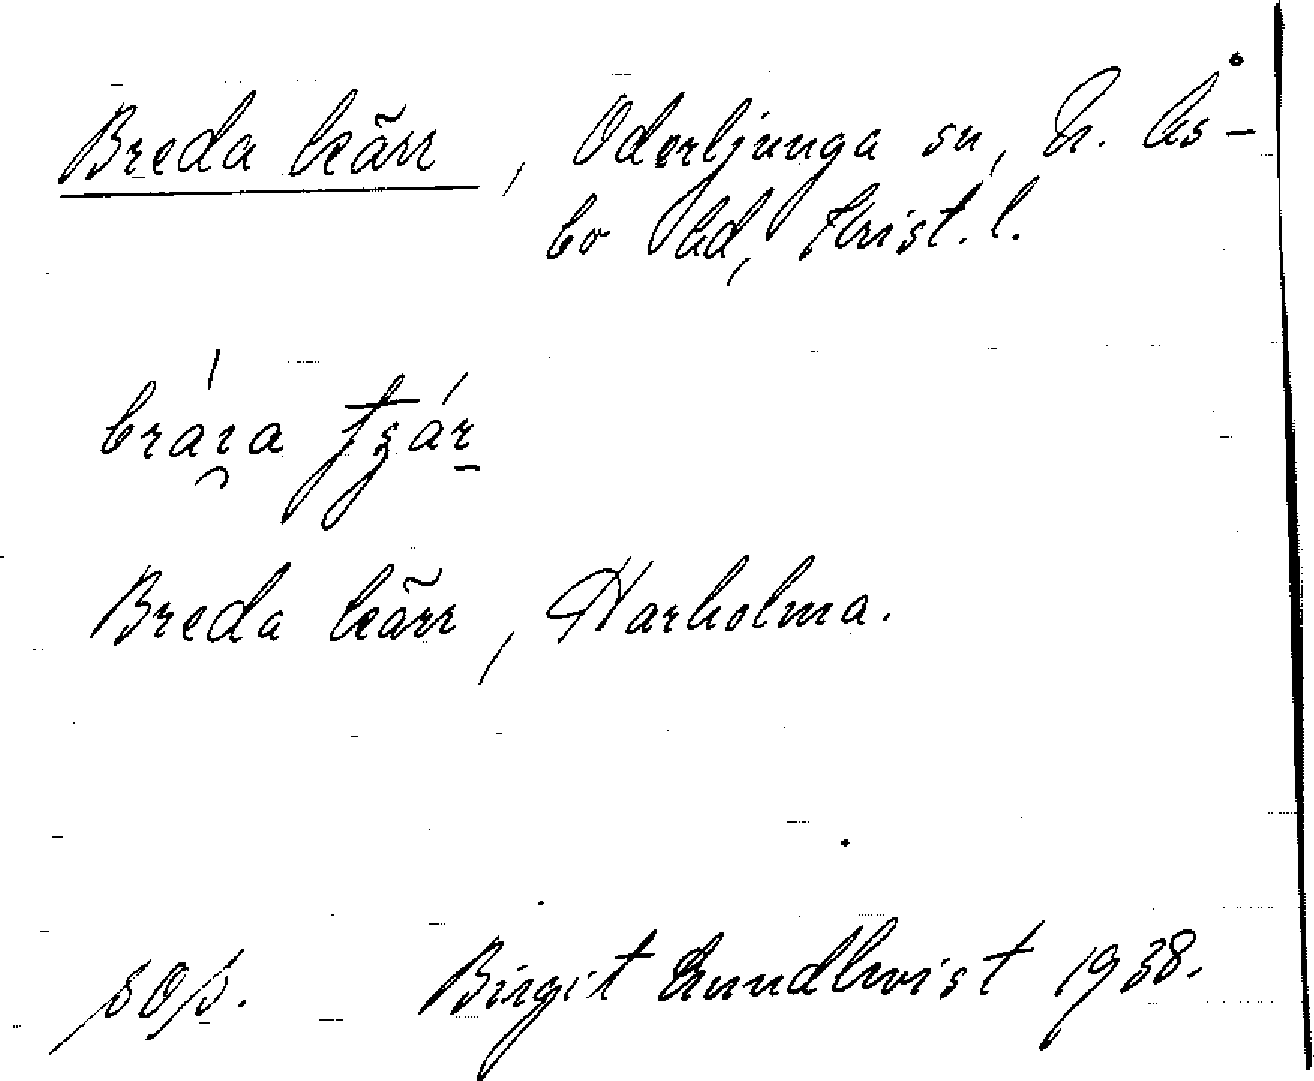 Breda kärr, Oderljunga sn, N. Ås-
bo hd, Krist. l.
Breda kärr, Harholma.
Birgit Lundkvist 1938.